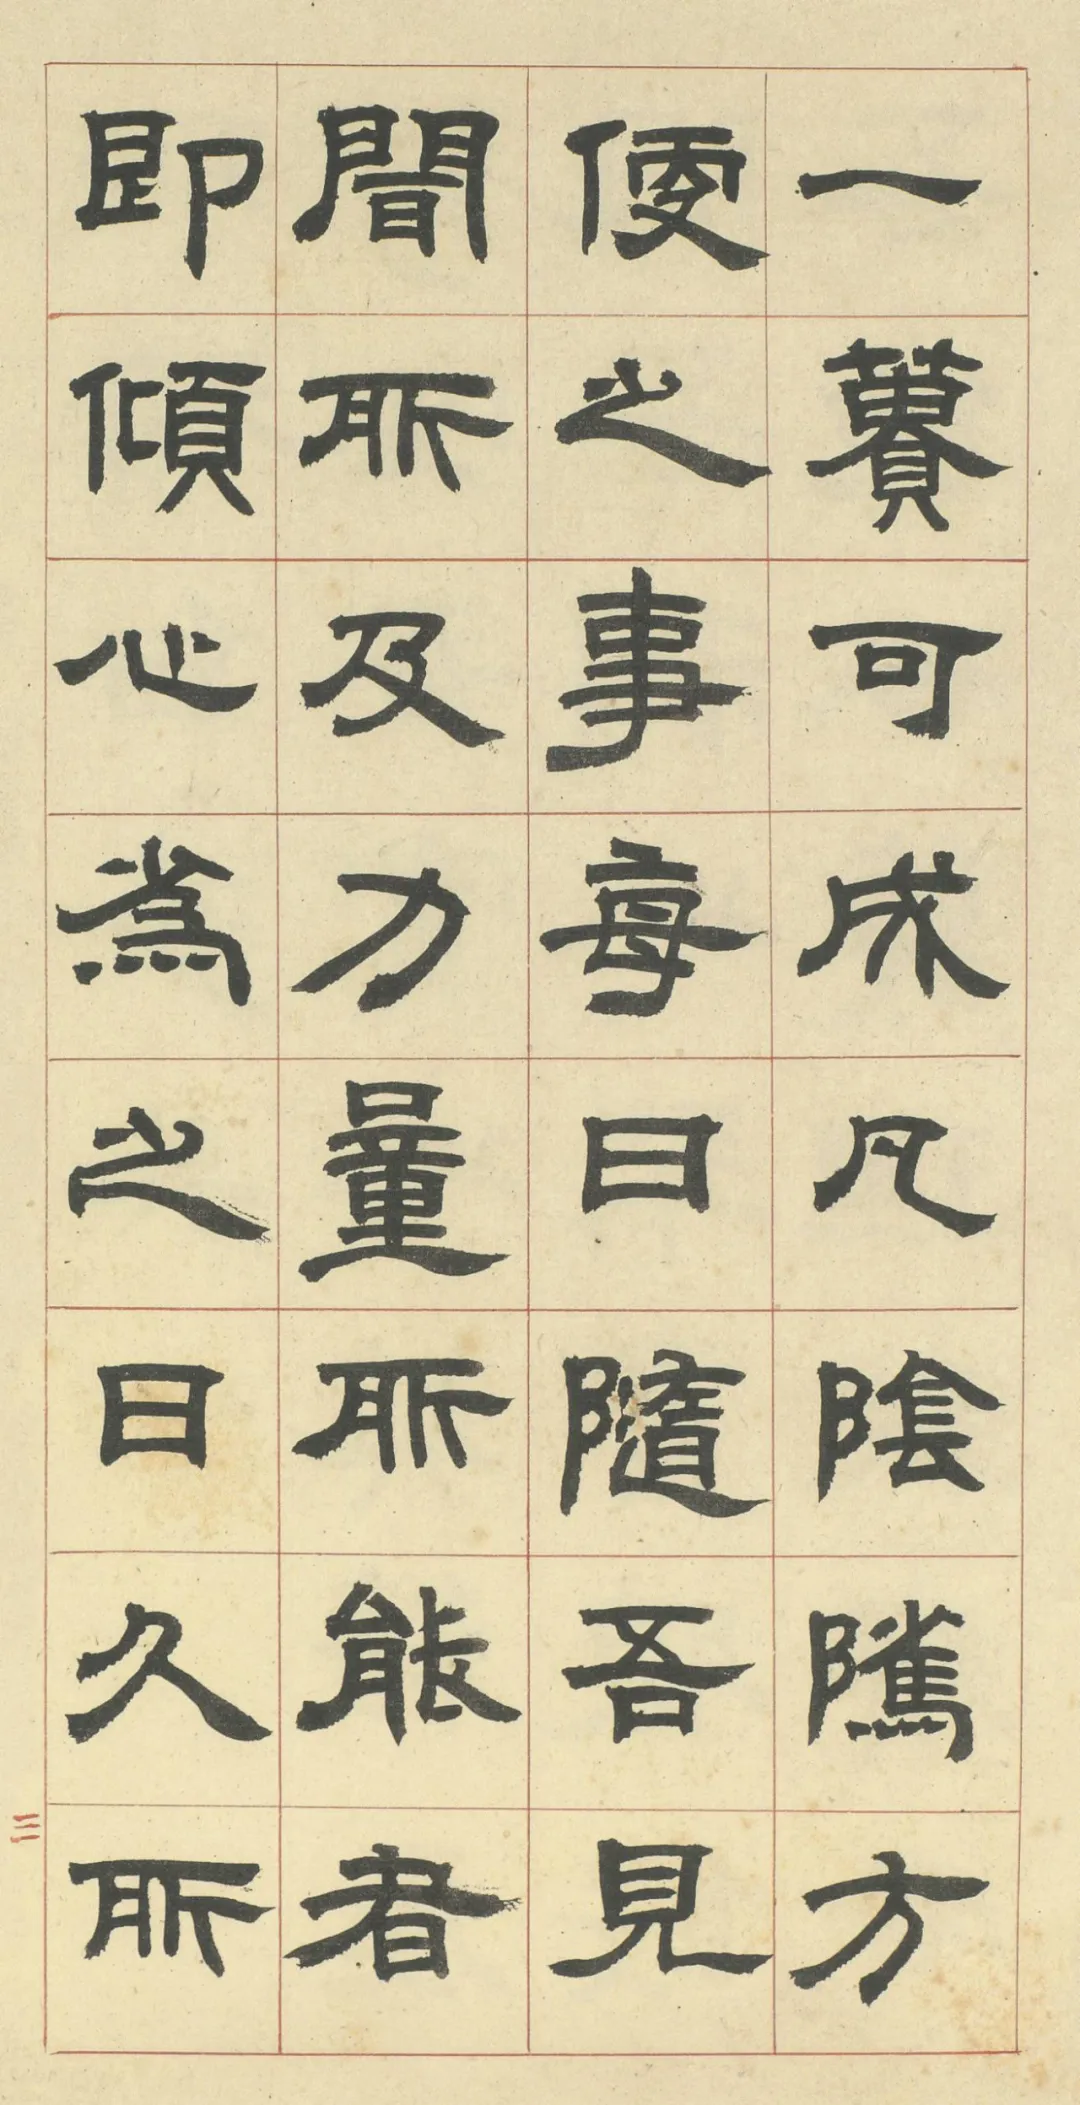 一蕢可成凡陰隲方
便之事每日隨吾見
聞所及力量所能者
即傾心爲之日久所
三二